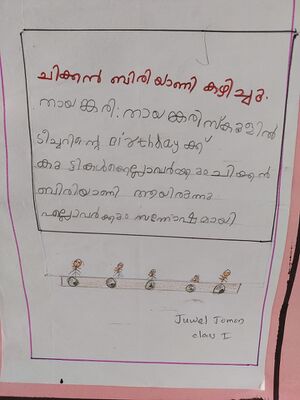 ചിക്കൻ ബിരിയാണി കഴിച്ചു.
നായങ്കരി: നായങ്കരി സ്കൂളിൽ
ടീച്ചറിന്റെ Birthday ക്ക്
കുട്ടികൾക്കെല്ലാവർക്കും ചിക്കൻ
ബിരിയാണി ആയിരുന്നു
എല്ലാവർക്കും സന്തോഷമായി
Juwel Jomon
class I